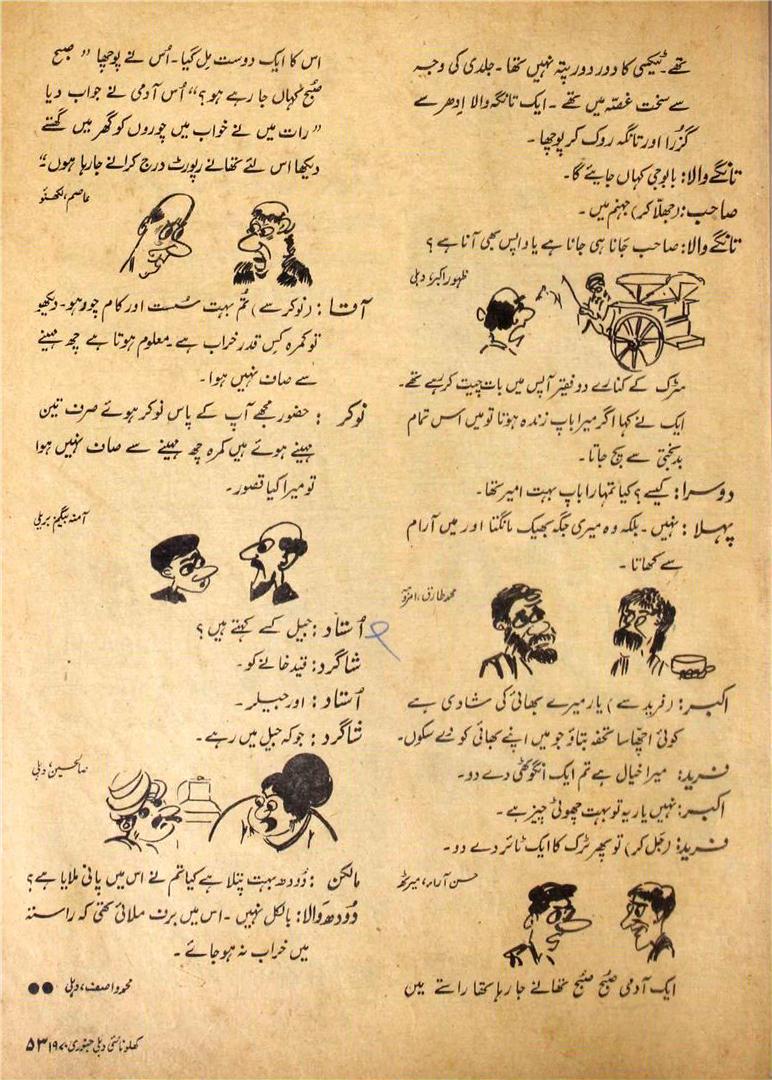 تھے۔ ٹیکسی کا دور دور پتہ نہیں تھا۔ جلدی کی وجہ
سے سخت غصّہ میں تھے۔ ایک تانگہ والا اِدھر سے
گزُرا اور تانگہ روک کر پوچھا۔
تانگے والا: بابوجی کہاں جایئے گا۔
صاحب: (جھلّا کر) جہنم میں۔
تانگے والا: صاحب جَانا ہی جانا ہے یا واپس بھی آنا ہے؟
ظہور اکبر، دہلی
سڑک کے کنارے دو فقیر آپس میں بات چیت کر رہے تھے۔
ایک نے کہا اگر میرا باپ زندہ ہوتا تو میں اس تمام
بدبختی سے بچ جاتا۔
دوسرا: کیسے؟ کیا تمہارا باپ بہت امیر تھا۔
پہلا: نہیں۔ بلکہ وہ میری جگہ بھیک مانگتا اور میں آرام
سے کھاتا۔
محمد طارق، امروہہ
اکبر: (فرید سے) یار میرے بھائی کی شادی ہے
کوئی اچّھا سا تحفہ بتاؤ جو میں اپنے بھائی کو دے سکوں۔
فرید: میرا خیال ہے تم ایک انگوٹھی دے دو۔
اکبر: نہیں یار یہ تو بہت چھوٹی چیز ہے۔
فرید: (جَل کر) تو پھر ٹرک کا ایک ٹائر دے دو۔
حسن آراء، میرٹھ
ایک آدمی صبُح صبُح تھانے جا رہا تھا راستے میں
اس کا ایک دوست مِل گیا۔ اُس نے پوچھا ”صبح
صبُح کہاں جا رہے ہو؟“ اُس آدمی نے جواب دیا
”رات میں نے خواب میں چوروں کو گھر میں گھستے
دیکھا اس لئے تھانے رپورٹ درج کرانے جا رہا ہوں۔“
عاصم، لکھنؤ
آقا: (نوکر سے) تُم بہت سُست اور کام چور ہو۔ دیکھو
تو کمرہ کِس قدر خراب ہے۔ معلوم ہوتا ہے چھ مہینے
سے صاف نہیں ہوا۔
نوکر: حضور مجھے آپ کے پاس نوکر ہوئے صرف تین
مہینے ہوئے ہیں کمرہ چھ مہینے سے صاف نہیں ہوا
تو میرا کیا قصور۔
آمنہ بیگم، بریلی
اُستاد: جیل کسے کہتے ہیں؟
شاگرد: قید خانے کو۔
اُستاد: اور جیلر۔
شاگرد: جو کہ جیل میں رہے۔
صالحین، دہلی
مالکن: دُودھ بہت پتلا ہے کیا تم نے اس میں پانی ملایا ہے؟
دُودھ وَالا: بالکل نہیں۔ اس میں برف ملائی تھی کہ راستہ
میں خراب نہ ہو جائے۔
محمد واصف، دہلی
کھلونا نئی دہلی جنوری ۱۹۷۰ ۵۳